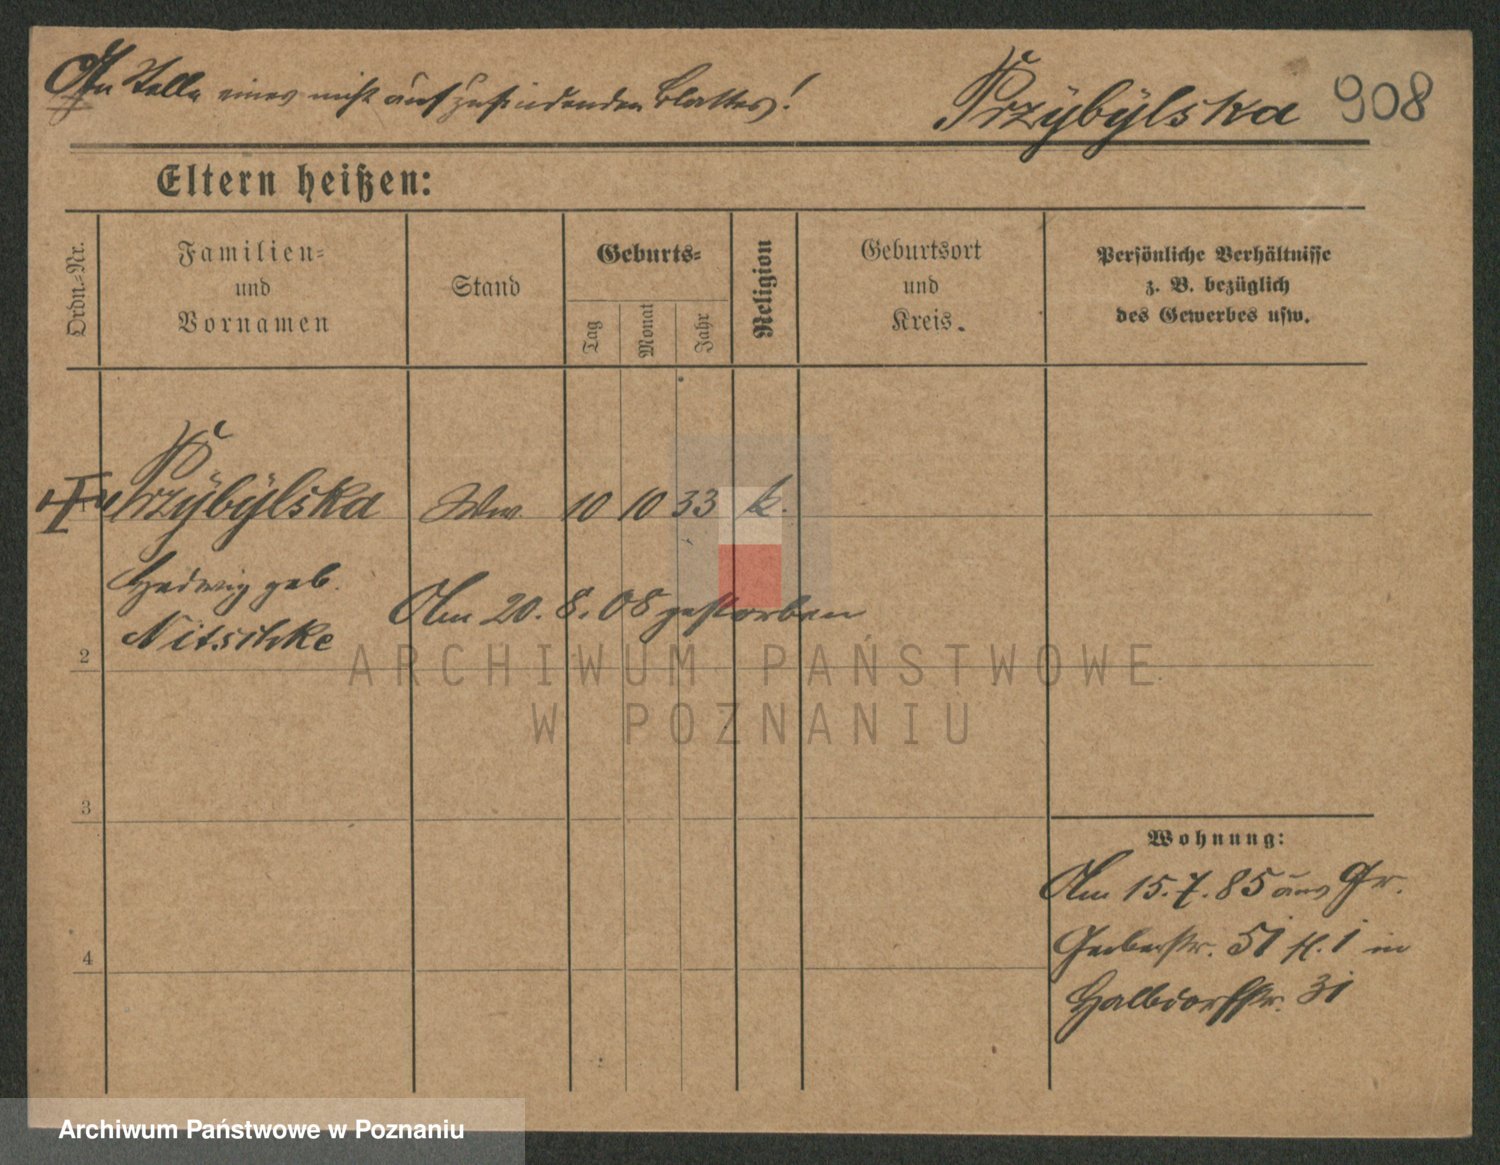 An Stelle eines nicht aufzufindenden Blattes! Przÿbÿlska 908
Eltern heißen:
Ordn.-Nr. Familien- und Vornamen Stand Geburts- Tag Monat Jahr Religion Geburtsort und Kreis. Persönliche Verhältnisse z. B. bezüglich des Gewerbes usw.
Przÿbÿlska Ww. 10 10 33 k.
Hedwig geb.
Nitschke
Am 20. 8. 08 gestorben
2
ARCHIWUM PAŃSTWOWE
W POZNANIU
3
Wohnung:
Am 15. 7. 85 aus Gr.
Gerberstr. 51 in
4
Halbdorfstr. 31
Archiwum Państwowe w Poznaniu